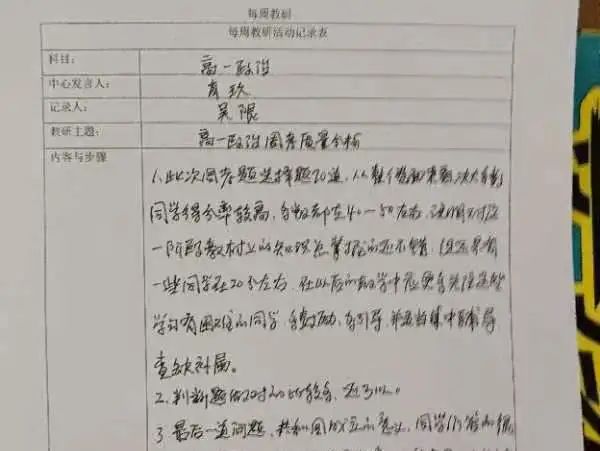 每周教研
每周教研活动记录表
科目: 高一政治
中心发言人: 育玖
记录人: 吴限
教研主题: 高一政治周考质量分析
内容与步骤
1、此次周考题选择题20道,从整个数据来看,绝大多数
同学得分率较高,多数都在40-50左右,说明对于
一阶段教材上的知识点掌握的还不错,但还是有
一些同学在20分左右,在此后的教学中应更多关注这些
学习有困难的同学,多鼓励,多引导,并及时集中辅导
查缺补漏。
2、判断题做对的比较多,
3 最后一道问题,共和国成立的意义,同学们答的很